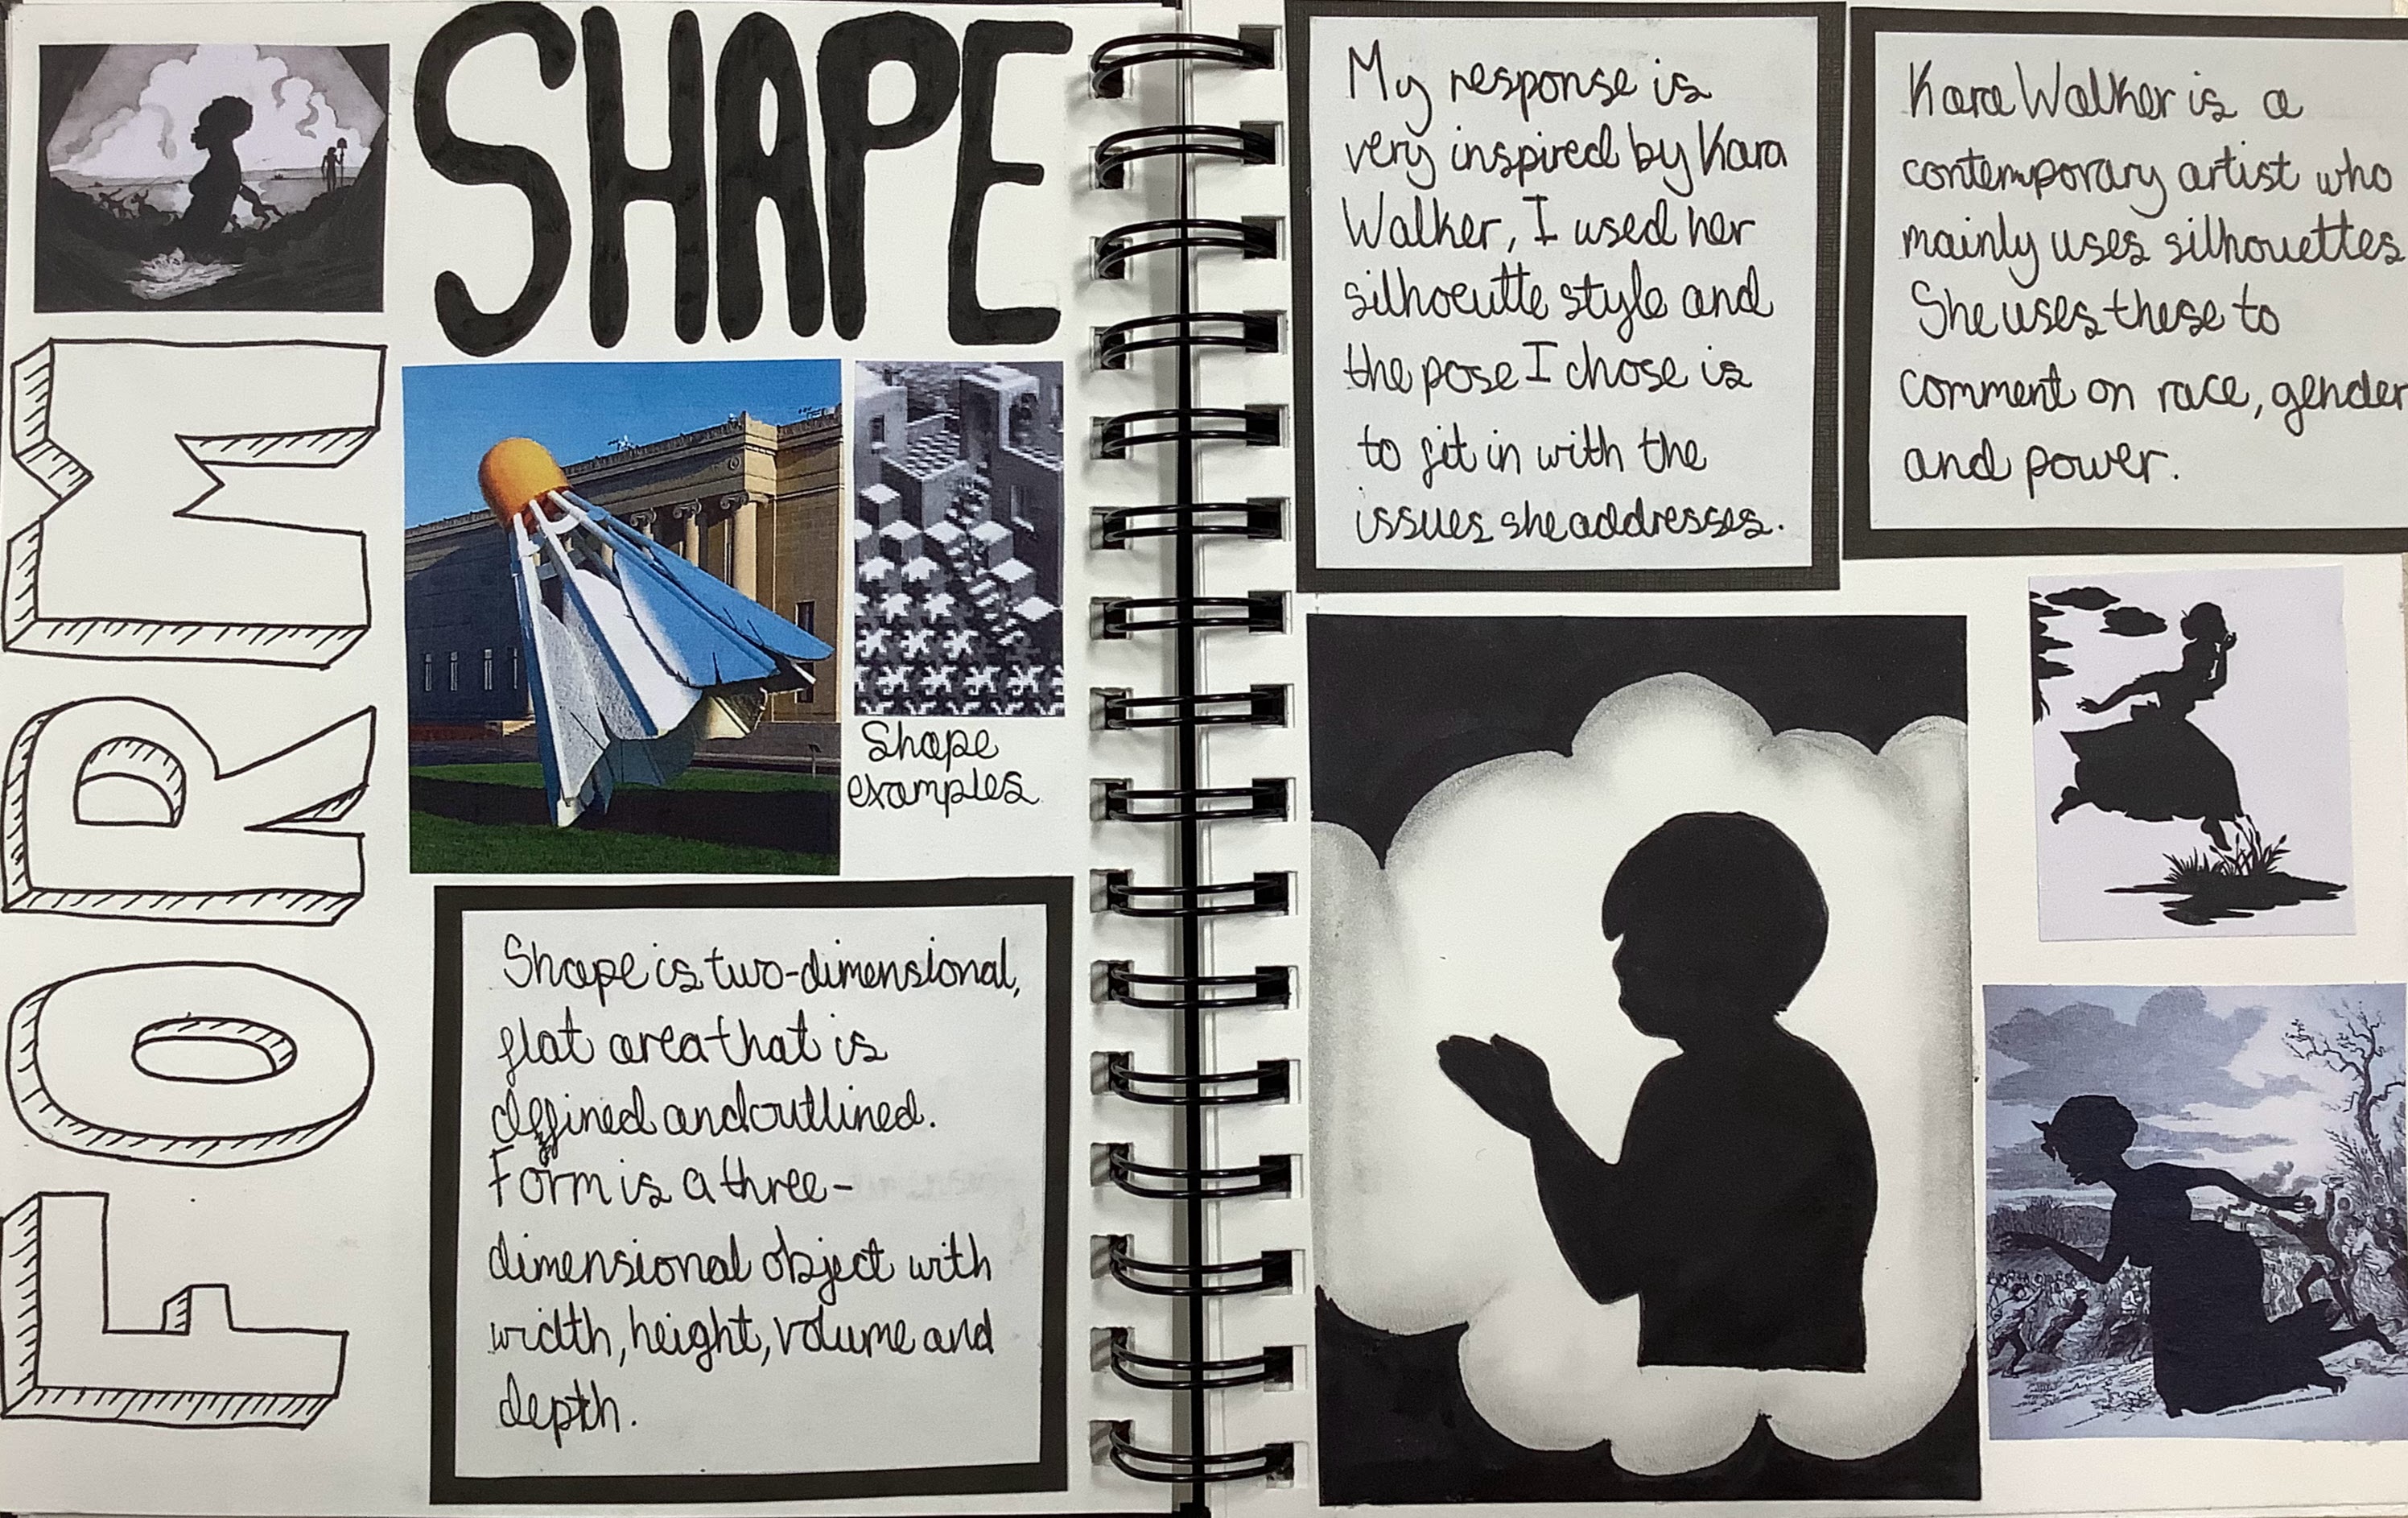 SHAPE
FORM
Shape
examples.
Shape is two-dimensional,
flat area that is
deffined and outlined.
Form is a three-
dimensional object with
width, height, volume and
depth.
My response is
very inspired by Kara
Walker, I used her
silhoeutte style and
the pose I chose is
to fit in with the
issues she addresses.
Kara Walker is a
contemporary artist who
mainly uses silhouettes
She uses these to
comment on race, gender
and power.